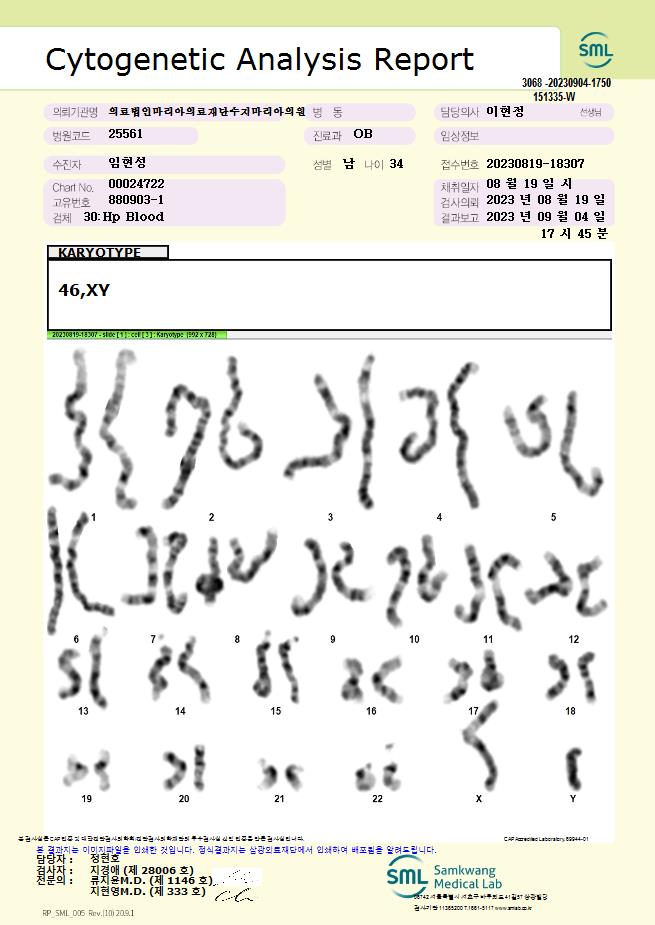 Cytogenetic Analysis Report
SML
3068 -20230904-1750
151335-W
의뢰기관명 의료법인마리아의료재단수지마리아의원 병 동 담당의사 이현정 선생님
병원코드 25561 진료과 OB 임상정보
수진자 임현성 성별 남 나이 34 접수번호 20230819-18307
Chart No. 00024722 채취일자 08 월 19 일 시
고유번호 880903-1 검사의뢰 2023 년 08 월 19 일
검체 30:Hp Blood 결과보고 2023 년 09 월 04 일
17 시 45 분
KARYOTYPE
46,XY
20230819-18307 - slide [ 1 ] : cell [ 3 ] : Karyotype (992 x 728)
1 2 3 4 5
6 7 8 9 10 11 12
13 14 15 16 17 18
19 20 21 22 X Y
CAP Accredited Laboratory, 69944-01
본 결과지는 이미지파일을 인쇄한 것입니다. 정식결과지는 삼광의료재단에서 인쇄하여 배포됨을 알려드립니다.
담당자 : 정현호
검사자 : 지경애 (제 28006 호)
전문의 : 류지윤M.D. (제 1146 호)
지현영M.D. (제 333 호)
SML Samkwang
Medical Lab
RP_SML_005 Rev.(10) 20.9.1